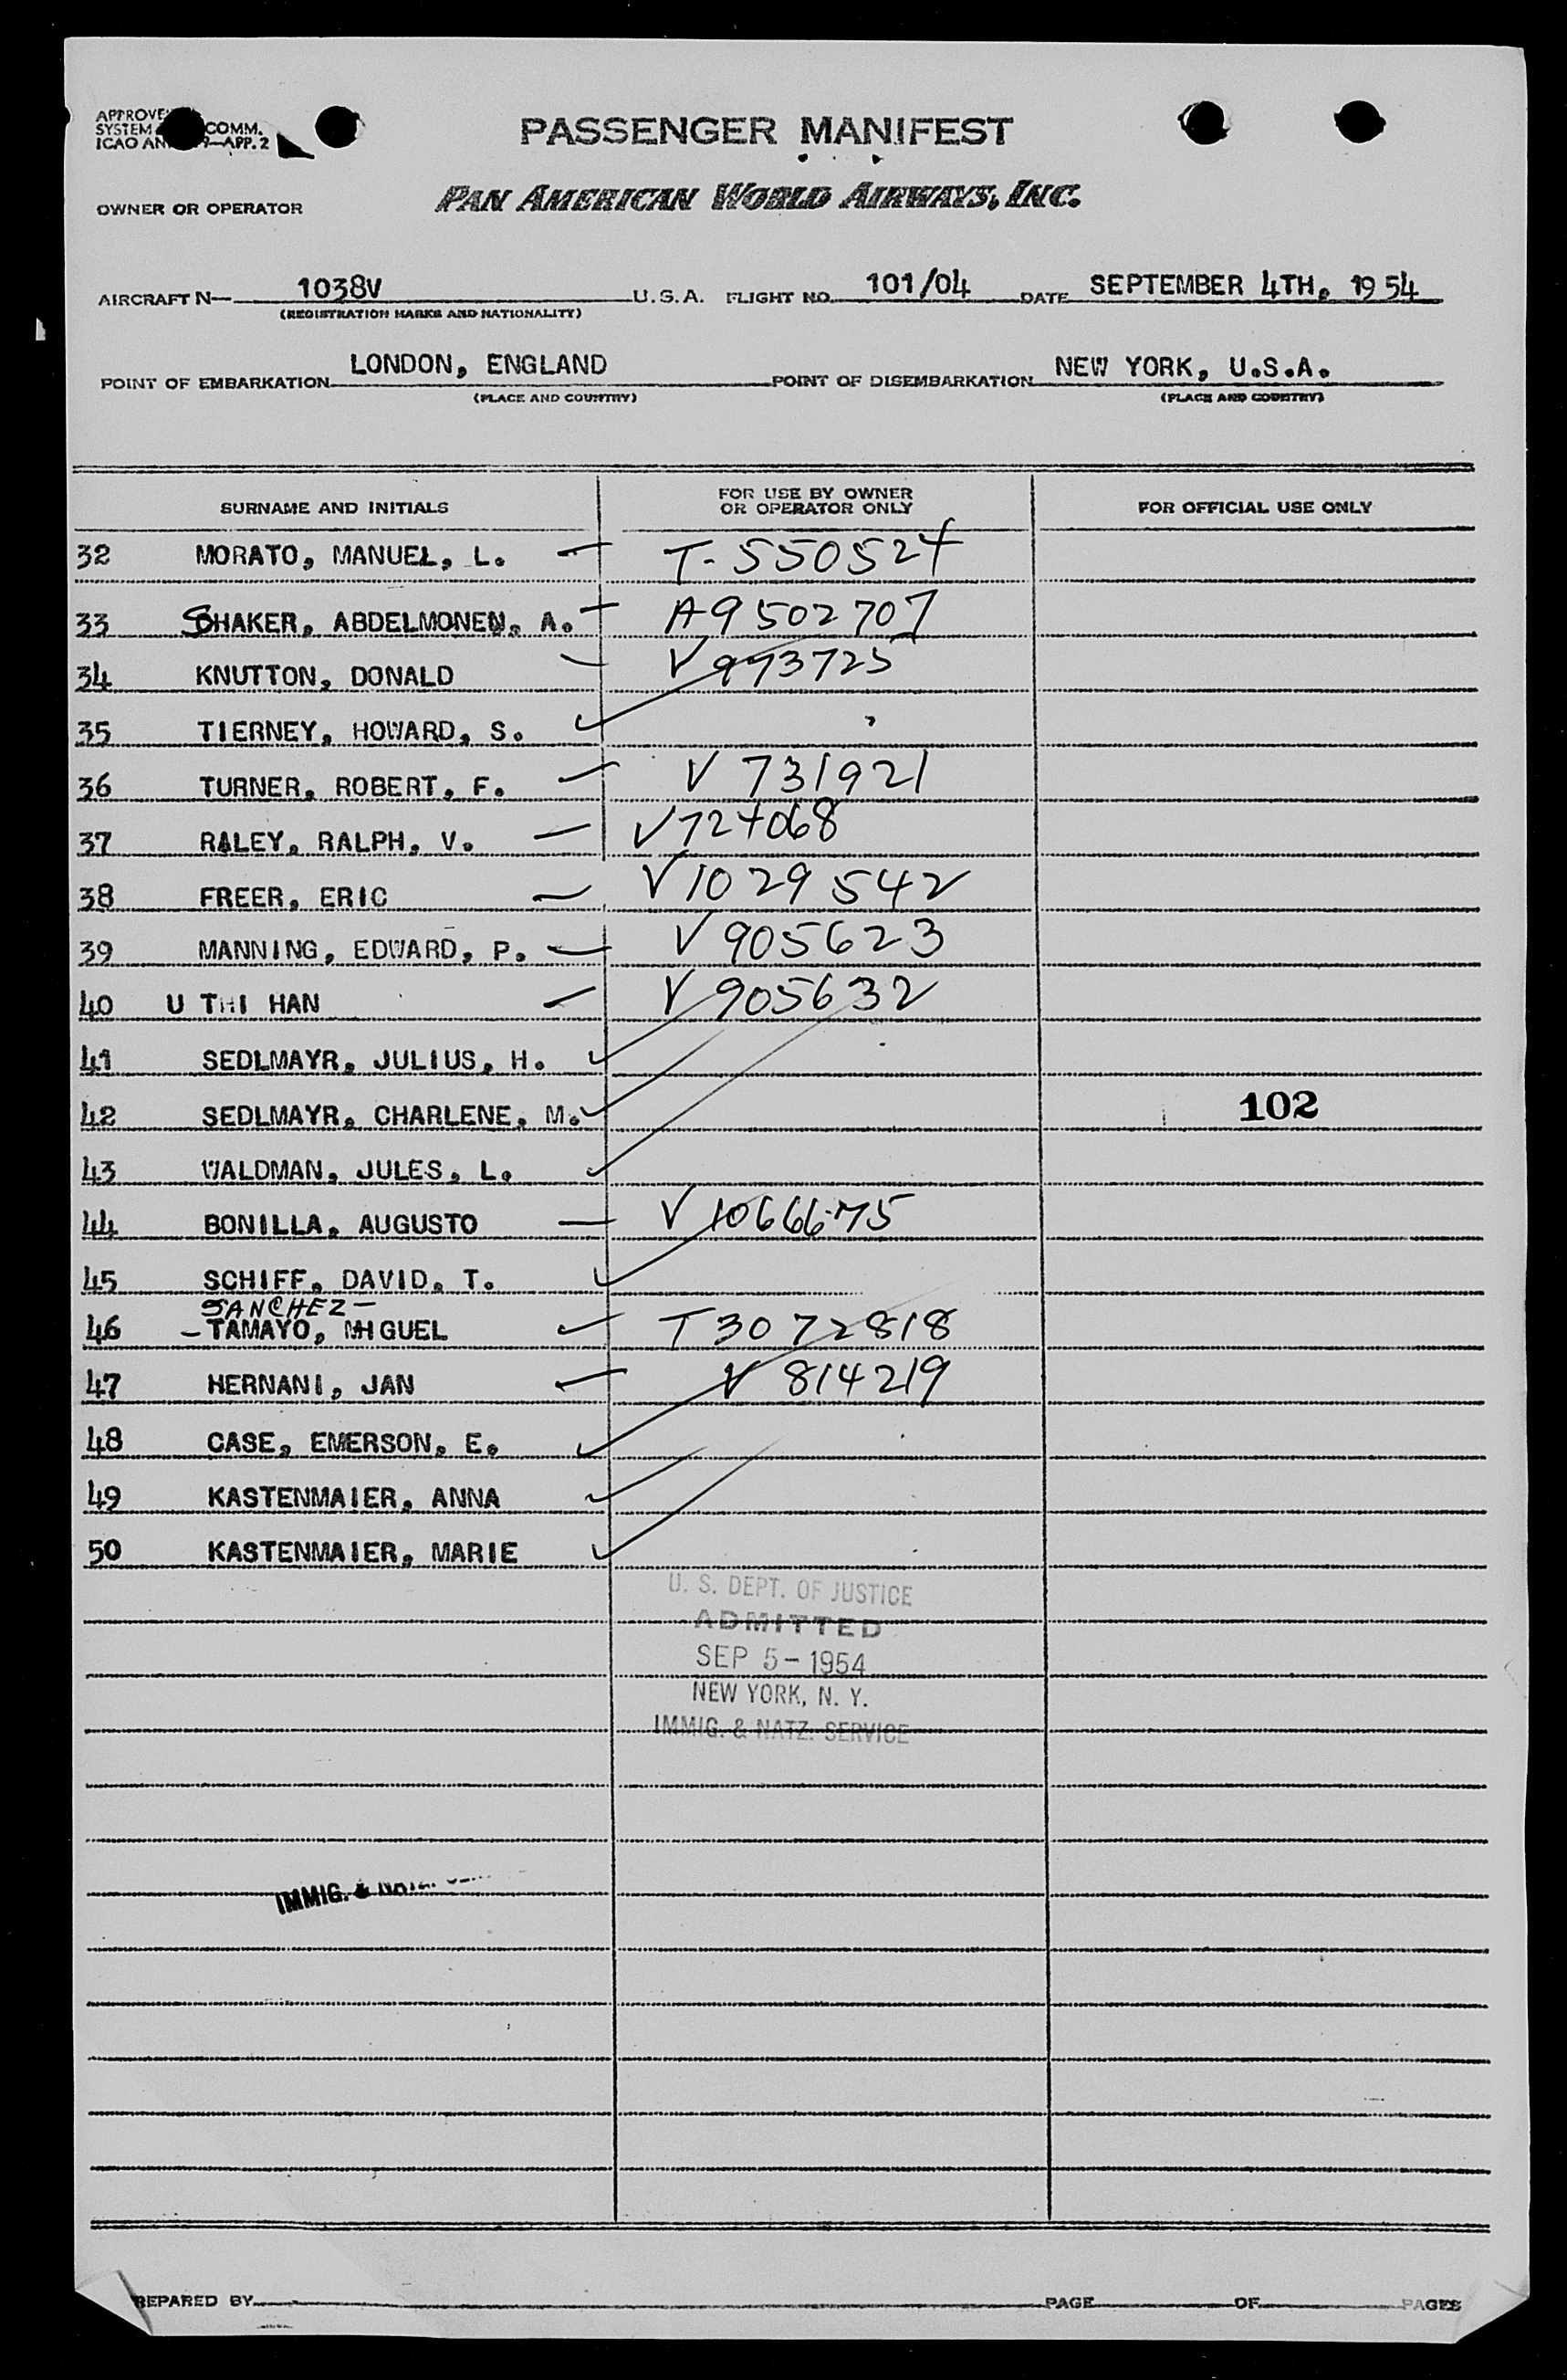 PASSENGER MANIFEST
SYSTEM COMM.
ICAO APP. 2
OWNER OR OPERATOR PAN AMERICAN WORLD AIRWAYS, INC.
AIRCRAFT N— 1038V U.S.A. FLIGHT NO. 101/04 DATE SEPTEMBER 4TH, 1954
(REGISTRATION MARKS AND NATIONALITY)
POINT OF EMBARKATION LONDON, ENGLAND POINT OF DISEMBARKATION NEW YORK, U.S.A.
(PLACE AND COUNTRY) (PLACE AND COUNTRY)
SURNAME AND INITIALS FOR USE BY OWNER OR OPERATOR ONLY FOR OFFICIAL USE ONLY
32 MORATO, MANUEL, L. T-550524
33 SHAKER, ABDELMONEN, A. A9502707
34 KNUTTON, DONALD V993725
35 TIERNEY, HOWARD, S.
36 TURNER, ROBERT, F. V 731921
37 RALEY, RALPH, V. V724068
38 FREER, ERIC V1029542
39 MANNING, EDWARD, P. V905623
40 U THI HAN V905632
41 SEDLMAYR, JULIUS, H.
42 SEDLMAYR, CHARLENE, M. 102
43 WALDMAN, JULES, L.
44 BONILLA, AUGUSTO V1066675
45 SCHIFF, DAVID, T.
SANCHEZ-
46 -TAMAYO, MIGUEL T3072818
47 HERNANI, JAN V 814219
48 CASE, EMERSON, E.
49 KASTENMAIER, ANNA
50 KASTENMAIER, MARIE
U. S. DEPT. OF JUSTICE
ADMITTED
SEP 5-1954
NEW YORK, N. Y.
IMMIG. & NATZ. SERVICE
IMMIG. &
PREPARED BY PAGE OF PAGES